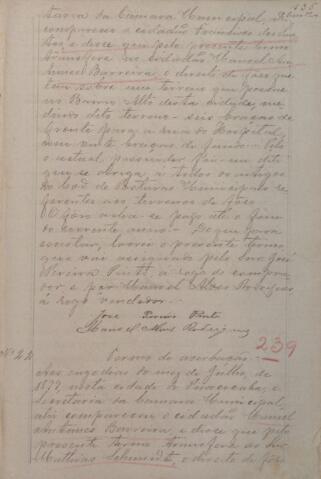 135
taria da Camara Municipal, ahi
compareceu o cidadão
e disse que pelo presente termo
transfere ao cidadão Manoel An
Barreira, o direito de fôro que
tem sobre um terreno que possue
no Bairro Alto desta cidade, me
dindo dito terreno seis braças de
frente para a rua do Hospital,
com vinte braças de fundo. Pelo
o actual possuidor foi me dito
que se obriga a todos os artigos
do Cod. de Posturas Municipaes re
ferentes aos terrenos de fôro
O fôro acha-se pago até o fim
do corrente anno. Do que para
constar, lavrei o presente termo,
que vai assignado pelo Snr. José
Pereira Pinto, a rogo do compra
dor e por Manoel Alves Rodrigues
a rogo vendedor.
José Pereira Pinto
Manoel Alves Rodrigues
239
Nº 22
Termo de averbação
Aos onze dias do mez de Julho, de
1877 nesta cidade de Piracicaba, e
Secretaria da Camara Municipal,
ahi compareceu o cidadão Manoel
Antonio Barreira, e disse que pelo
presente termo transfere ao Snr.
Mathias Schmidt, o direito de fôro